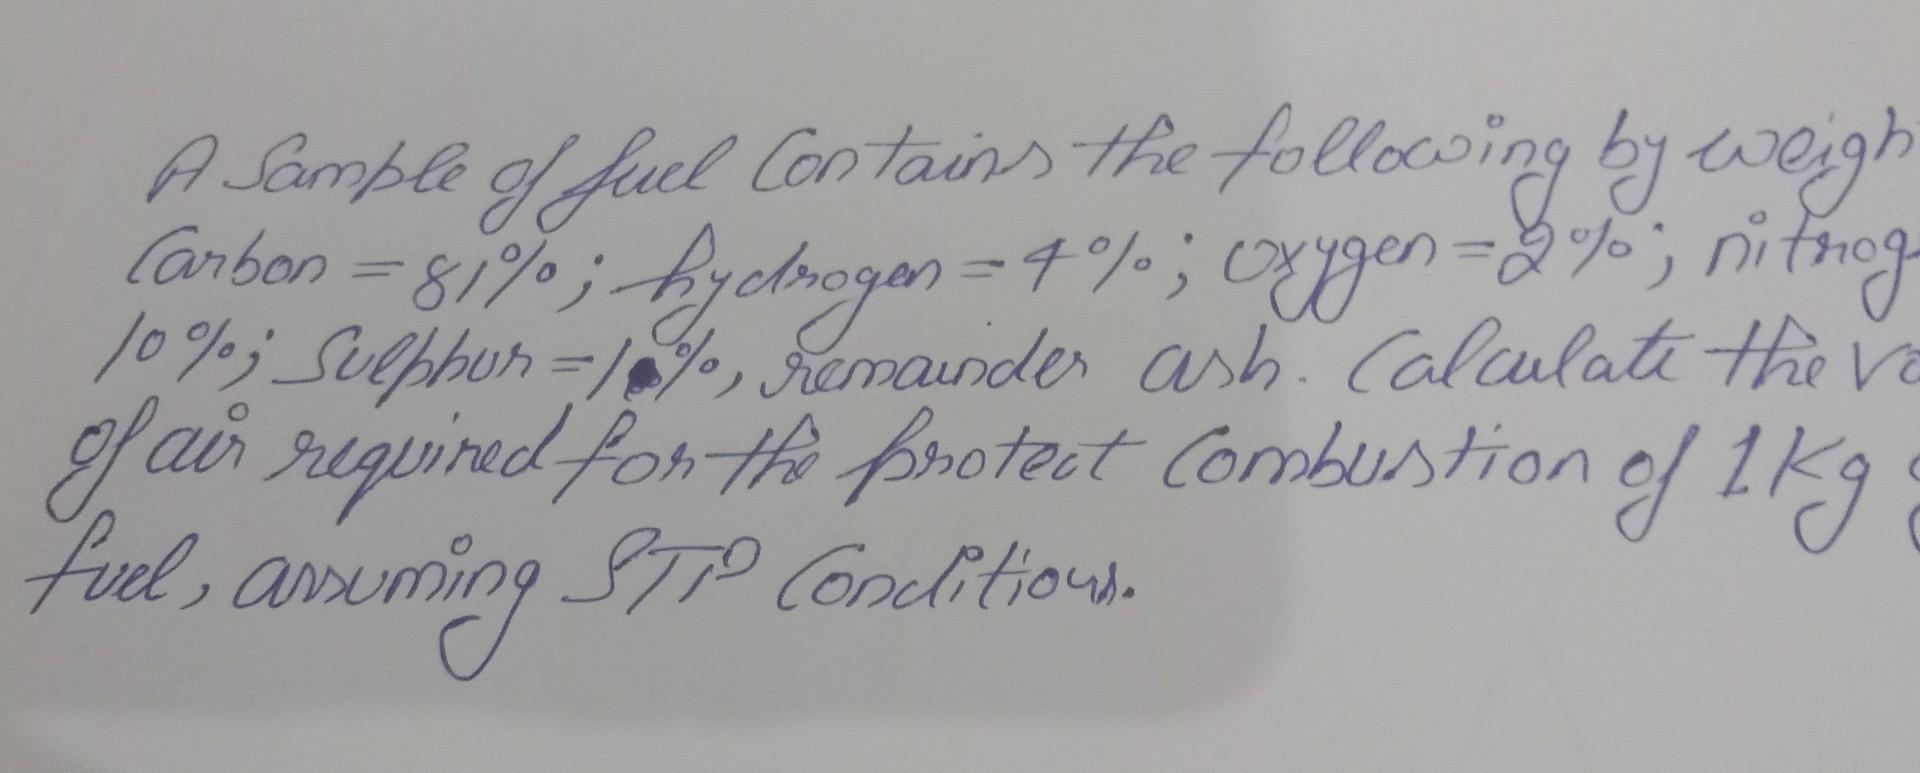 A Sample of fuel Contains the following by weigh
Carbon = 81%; hydrogen = 4%; oxygen = 2%; nitrog
10%; Sulphur = 1%, remainder ash. Calculate the Vo
of air required for the protect Combustion of 1Kg
fuel, assuming STP Conditions.